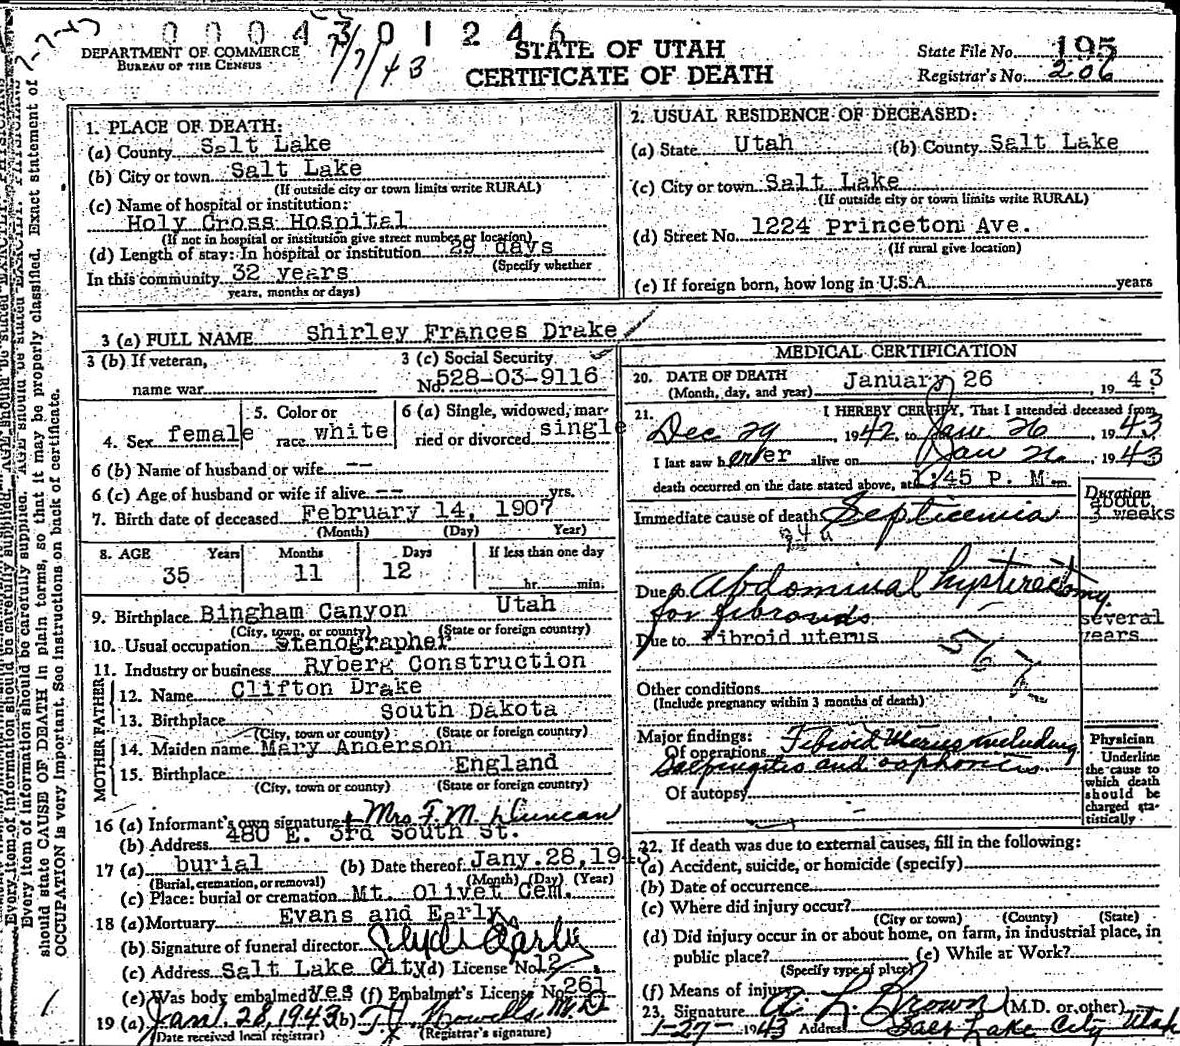 0004301246
DEPARTMENT OF COMMERCE
BUREAU OF THE CENSUS
7/7/43
7-7-43
STATE OF UTAH
CERTIFICATE OF DEATH
State File No. 195
Registrar's No. 206
1. PLACE OF DEATH:
(a) County Salt Lake
(b) City or town Salt Lake
(If outside city or town limits write RURAL)
(c) Name of hospital or institution:
Holy Cross Hospital
(If not in hospital or institution give street number or location)
(d) Length of stay: In hospital or institution 29 days
(Specify whether
In this community 32 years
years, months or days)
2. USUAL RESIDENCE OF DECEASED:
(a) State Utah (b) County Salt Lake
(c) City or town Salt Lake
(If outside city or town limits write RURAL)
(d) Street No. 1224 Princeton Ave.
(If rural give location)
(e) If foreign born, how long in U.S.A. years
3 (a) FULL NAME Shirley Frances Drake
3 (b) If veteran,
name war
3 (c) Social Security
No. 528-03-9116
4. Sex female
5. Color or
race white
6 (a) Single, widowed, mar-
ried or divorced single
6 (b) Name of husband or wife --
6 (c) Age of husband or wife if alive -- yrs.
7. Birth date of deceased February 14, 1907
(Month) (Day) Year)
8. AGE Years Months Days If less than one day
35 11 12 hr. min.
9. Birthplace Bingham Canyon Utah
(City, town, or county) (State or foreign country)
10. Usual occupation stenographer
11. Industry or business Ryberg Construction
FATHER
12. Name Clifton Drake
13. Birthplace South Dakota
(City, town or county) (State or foreign country)
MOTHER
14. Maiden name Mary Anderson
15. Birthplace England
(City, town or county) (State or foreign country)
16 (a) Informant's own signature Mrs F. M. Duncan
(b) Address 480 E. 3rd South St.
17 (a) burial (b) Date thereof Jany. 28, 1943
(Burial, cremation, or removal) (Month) (Day) (Year)
(c) Place: burial or cremation Mt. Olivet Cem.
18 (a) Mortuary Evans and Early
(b) Signature of funeral director Clyde Early
(c) Address Salt Lake City (d) License No. 12
(e) Was body embalmed? yes (f) Embalmer's License No. 261
19 (a) Jan. 28, 1943 (b) T. J. Howells M.D
(Date received local registrar) (Registrar's signature)
MEDICAL CERTIFICATION
20. DATE OF DEATH January 26, 1943
(Month, day, and year)
21. I HEREBY CERTIFY, That I attended deceased from
Dec 29, 1942, to Jan 26, 1943
I last saw her alive on Jan 26, 1943
death occurred on the date stated above, at 1:45 P. M.
Duration
Immediate cause of death Septicemia
about
3 weeks
Due to Abdominal hysterectomy
for fibroids
Due to fibroid uterus
several
years
56
Other conditions
(Include pregnancy within 3 months of death)
Major findings:
Of operations Fibroid Uterus including
Salpingitis and oophoritis
Of autopsy
Physician
Underline
the cause to
which death
should be
charged sta-
tistically
22. If death was due to external causes, fill in the following:
(a) Accident, suicide, or homicide (specify)
(b) Date of occurrence
(c) Where did injury occur?
(City or town) (County) (State)
(d) Did injury occur in or about home, on farm, in industrial place, in
public place? (e) While at Work?
(Specify type of place)
(f) Means of injury
23. Signature A L Brown (M.D. or other)
1-27-1943 Address Salt Lake City Utah
Every item of information should be carefully supplied. AGE should be stated EXACTLY. PHYSICIANS
should state CAUSE OF DEATH in plain terms, so that it may be properly classified. Exact statement of
OCCUPATION is very important. See instructions on back of certificate.